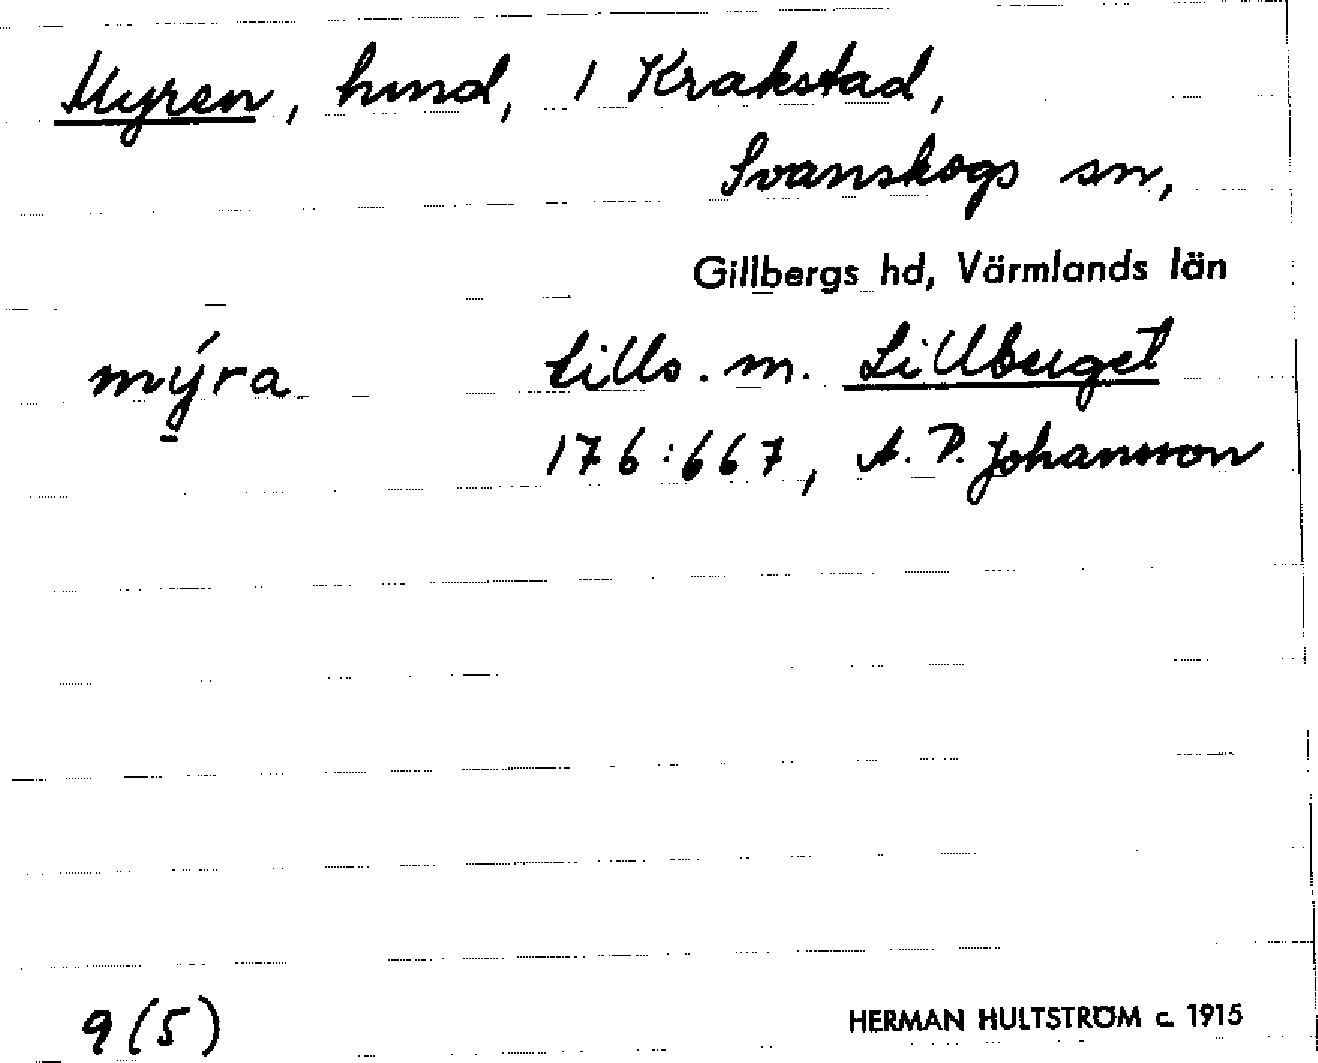 Myren, hmd, 1 Krakstad,
Svanskogs sn,
Gillbergs hd, Värmlands län
mýra tills. m. Lillberget
176:667, A. P. Johansson
9(5) HERMAN HULTSTRÖM c. 1915